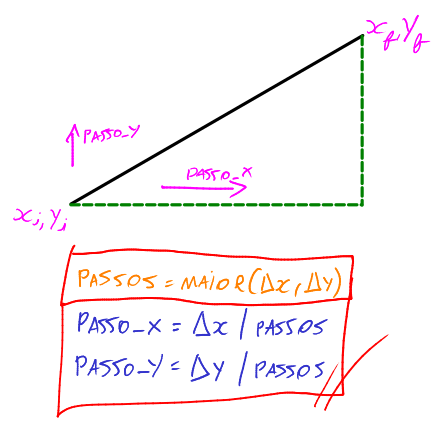 xf, yf
PASSO_Y
PASSO_X
xi, yi
PASSOS = MAIOR(Δx, Δy)
PASSO_X = Δx / PASSOS
PASSO_Y = Δy / PASSOS